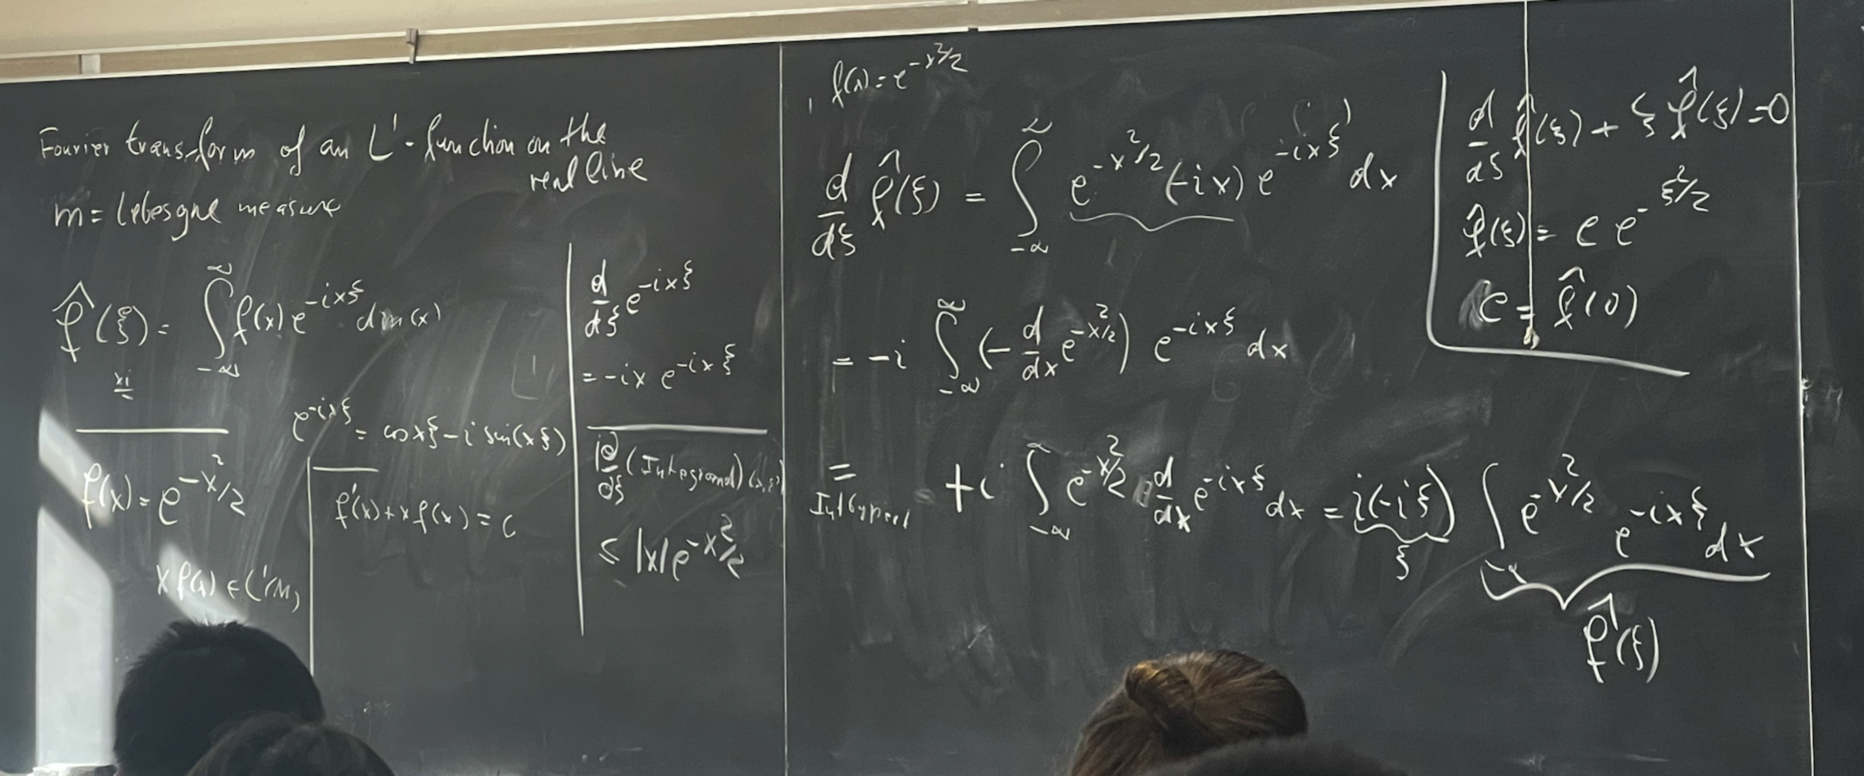 Fourier transform of an L¹-function on the
real line
m = Lebesgue measure
f̂(ξ) = ∫_{-∞}^{∞} f(x) e^{-ixξ} dm(x)
xi
e^{-ixξ} = cos xξ - i sin(xξ)
f(x) = e^{-x²/2}
x f(x) ∈ L¹(m)
f'(x) + x f(x) = 0
d/dξ e^{-ixξ}
= -ix e^{-ixξ}
|∂/∂ξ (Integrand)(x,ξ)|
≤ |x| e^{-x²/2}
, f(x) = e^{-x²/2}
d/dξ f̂(ξ) = ∫_{-∞}^{∞} e^{-x²/2} (-ix) e^{-ixξ} dx
= -i ∫_{-∞}^{∞} (- d/dx e^{-x²/2}) e^{-ixξ} dx
= +i ∫_{-∞}^{∞} e^{-x²/2} d/dx e^{-ixξ} dx = i(-iξ) ∫_{-∞} e^{-x²/2} e^{-ixξ} dx
Int by part
ξ
f̂(ξ)
d/dξ f̂(ξ) + ξ f̂(ξ) = 0
f̂(ξ) = c e^{-ξ²/2}
c = f̂(0)